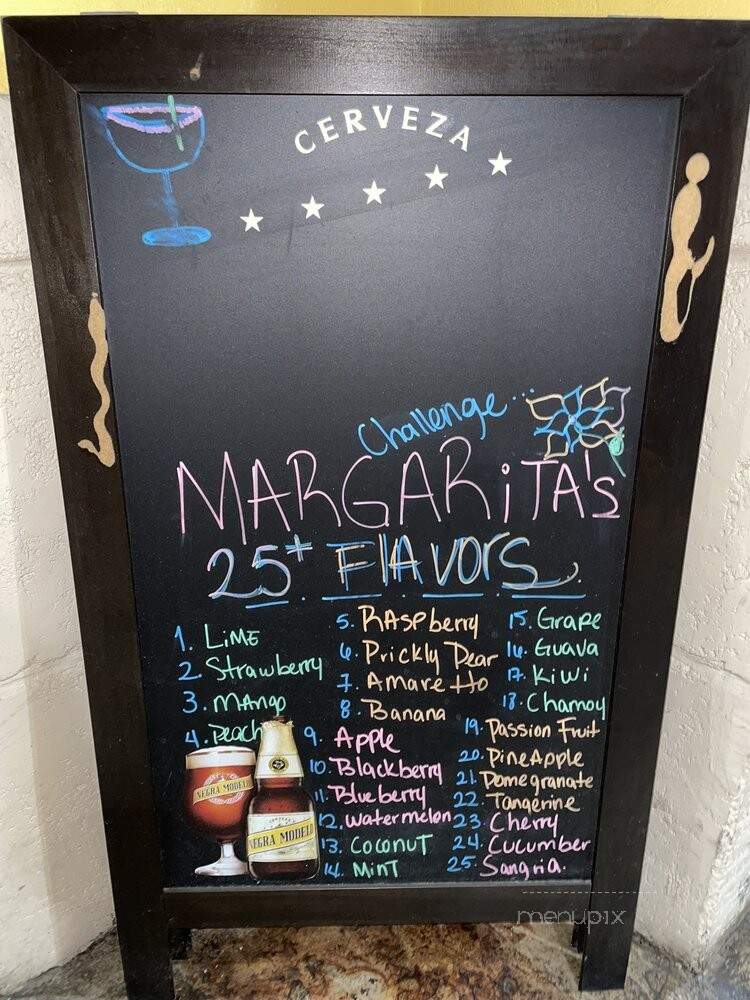 CERVEZA
Challenge...
MARGARiTA's
25+ FlAVORS
1. LiME
2 Strawberry
3. MAngo
4. peach
5. RASpberry
6. Prickly Pear
7. Amaretto
8. Banana
9. Apple
10. Blackberry
11. Blueberry
12. watermelon
13. COCONUT
14. MinT
15. Grape
16. Guava
17. Kiwi
18. Chamoy
19. Passion Fruit
20. PineApple
21. Pomegranate
22. Tangerine
23. Cherry
24. Cucumber
25. Sangria.
NEGRA MODELO
NEGRA MODELO
menupix